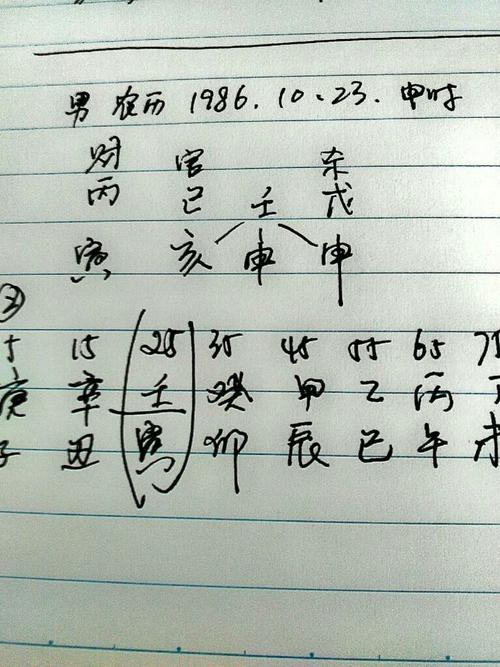 男 农历 1986.10.23. 申时
财 官 杀
丙 己 壬 戊
寅 亥 申 申
②
5 15 25 35 45 55 65 75
庚 辛 壬 癸 甲 乙 丙
子 丑 寅 卯 辰 巳 午 未